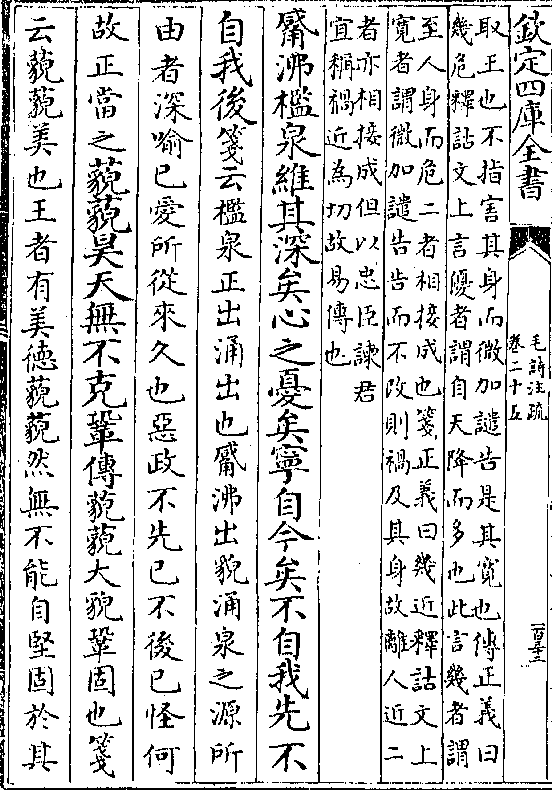 欽定四庫全書
毛詩注疏
卷二十五
取王也不指害其身而微加譴告是其寛也傳正義曰
幾危釋詁文上言優者謂自天降而多也此言幾者謂
至人身而危二者相接成也箋正義曰幾近釋詁文上
寛者謂微加譴告告而不改則禍及其身故離人近二
者亦相接成但以忠臣諫君
宜稱禍近為切故易傳也
觱沸檻泉維其深矣心之憂矣寧自今矣不自我先不
自我後箋云檻泉正出涌出也觱沸出貌涌泉之源所
由者深喻已憂所從來久也惡政不先已不後已怪何
故正當之藐藐昊天無不克鞏傳藐藐大貌鞏固也箋
云藐藐美也王者有美德藐藐然無不能自堅固於其